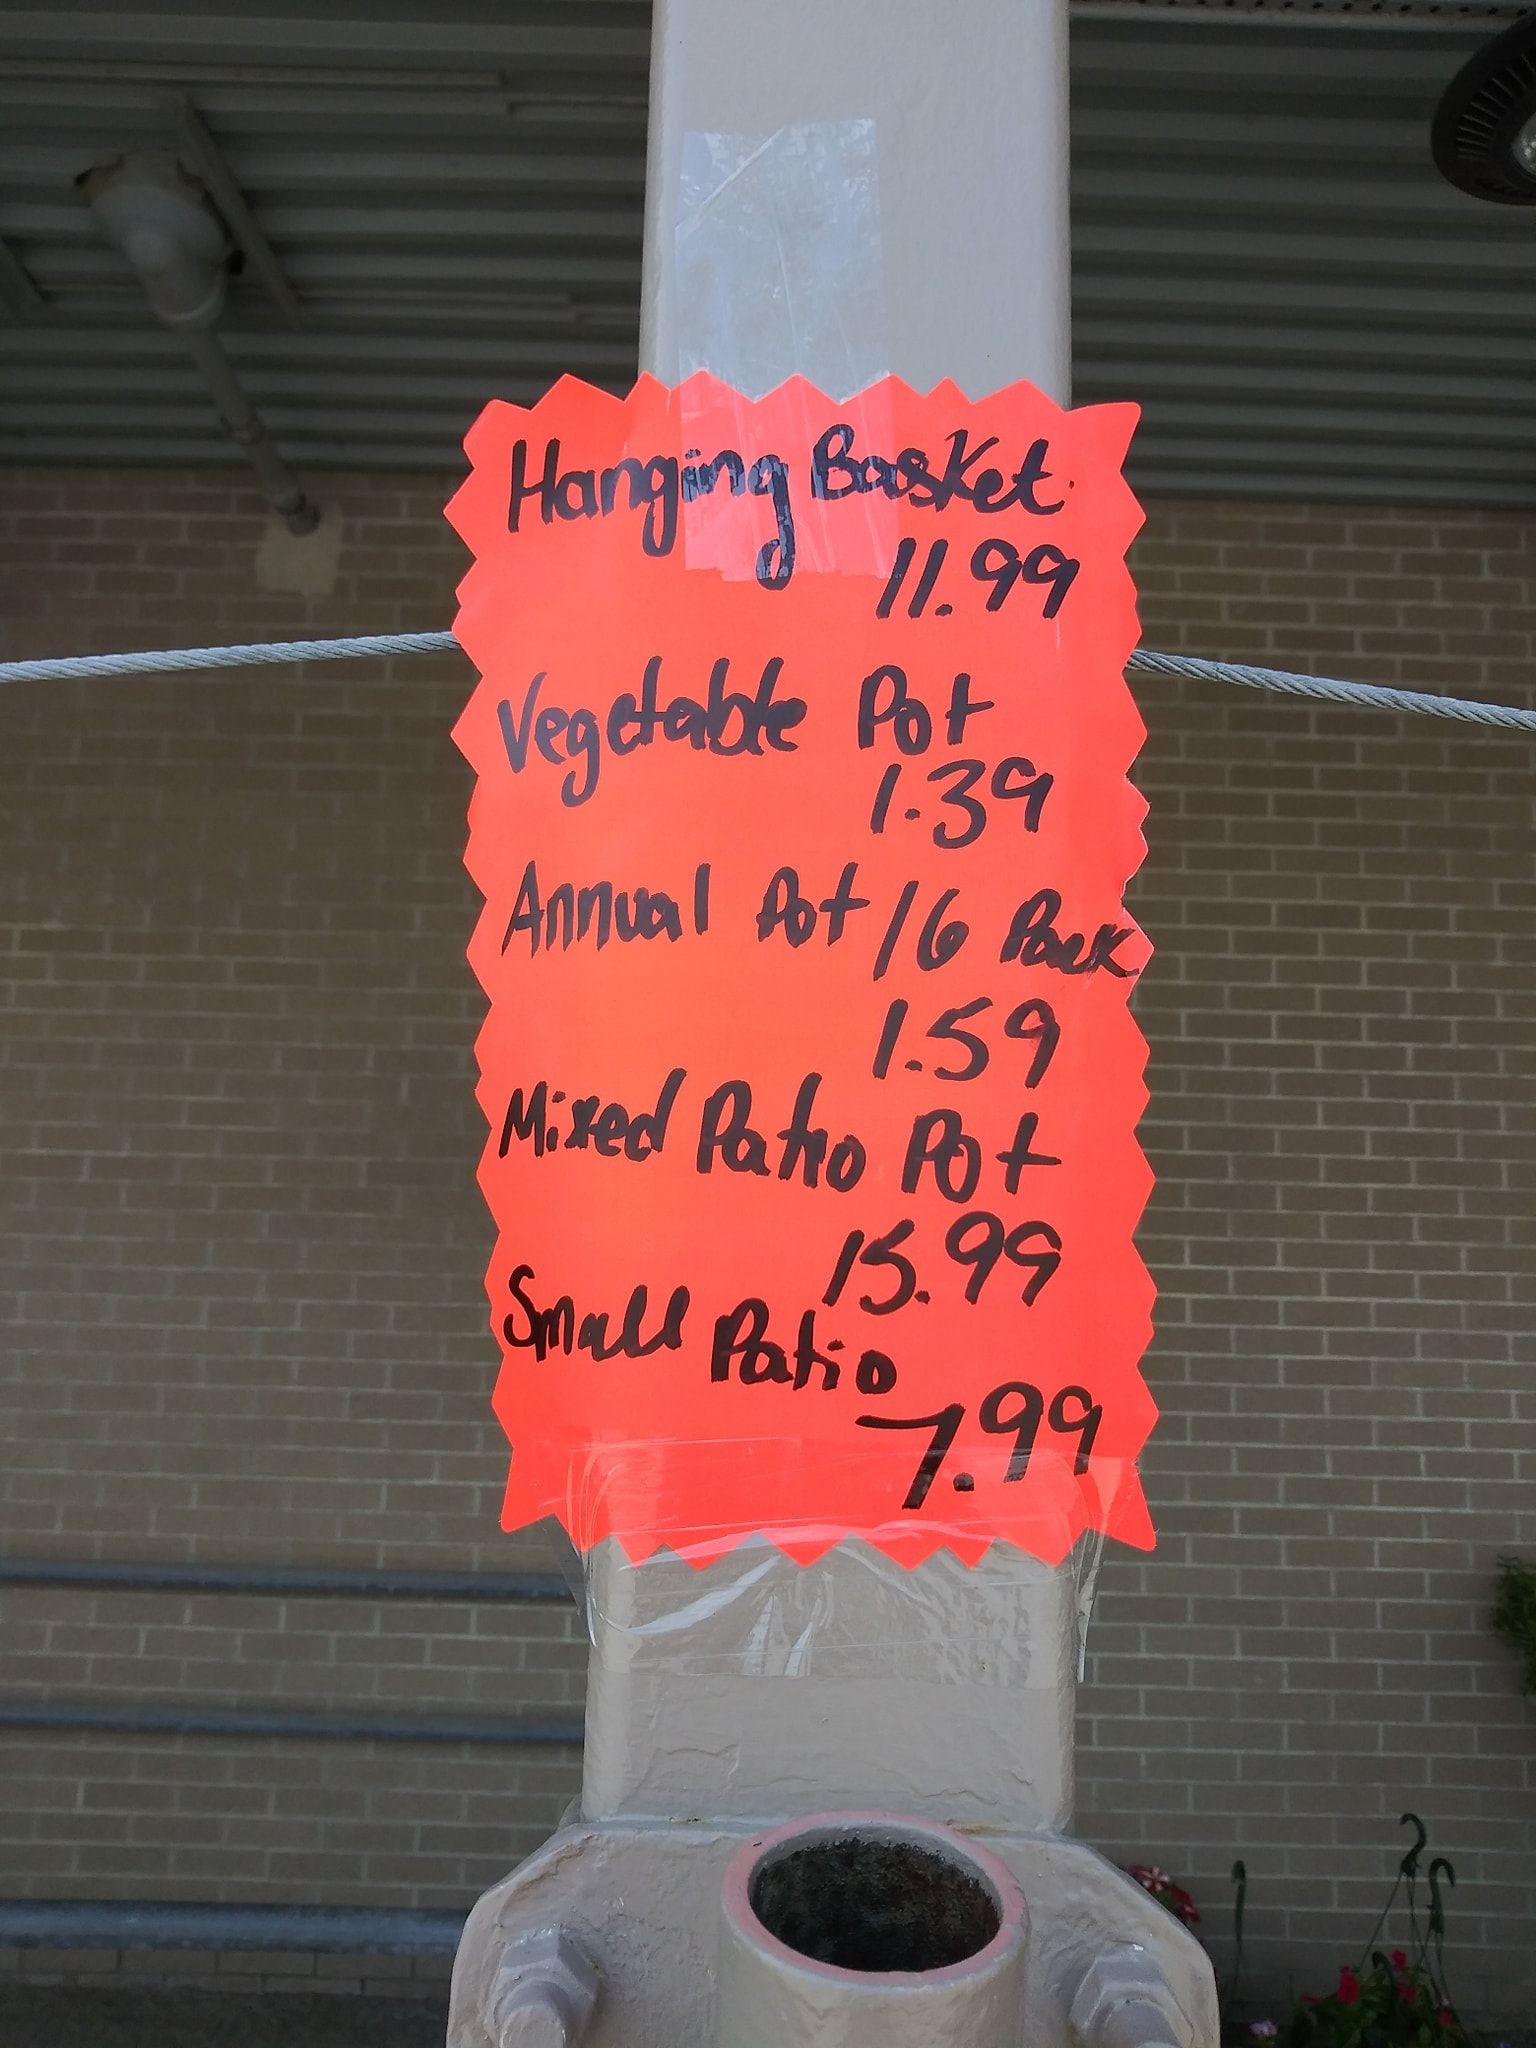 Hanging Basket
11.99
Vegetable Pot
1.39
Annual Pot/6 Pack
1.59
Mixed Patio Pot
15.99
Small Patio
7.99